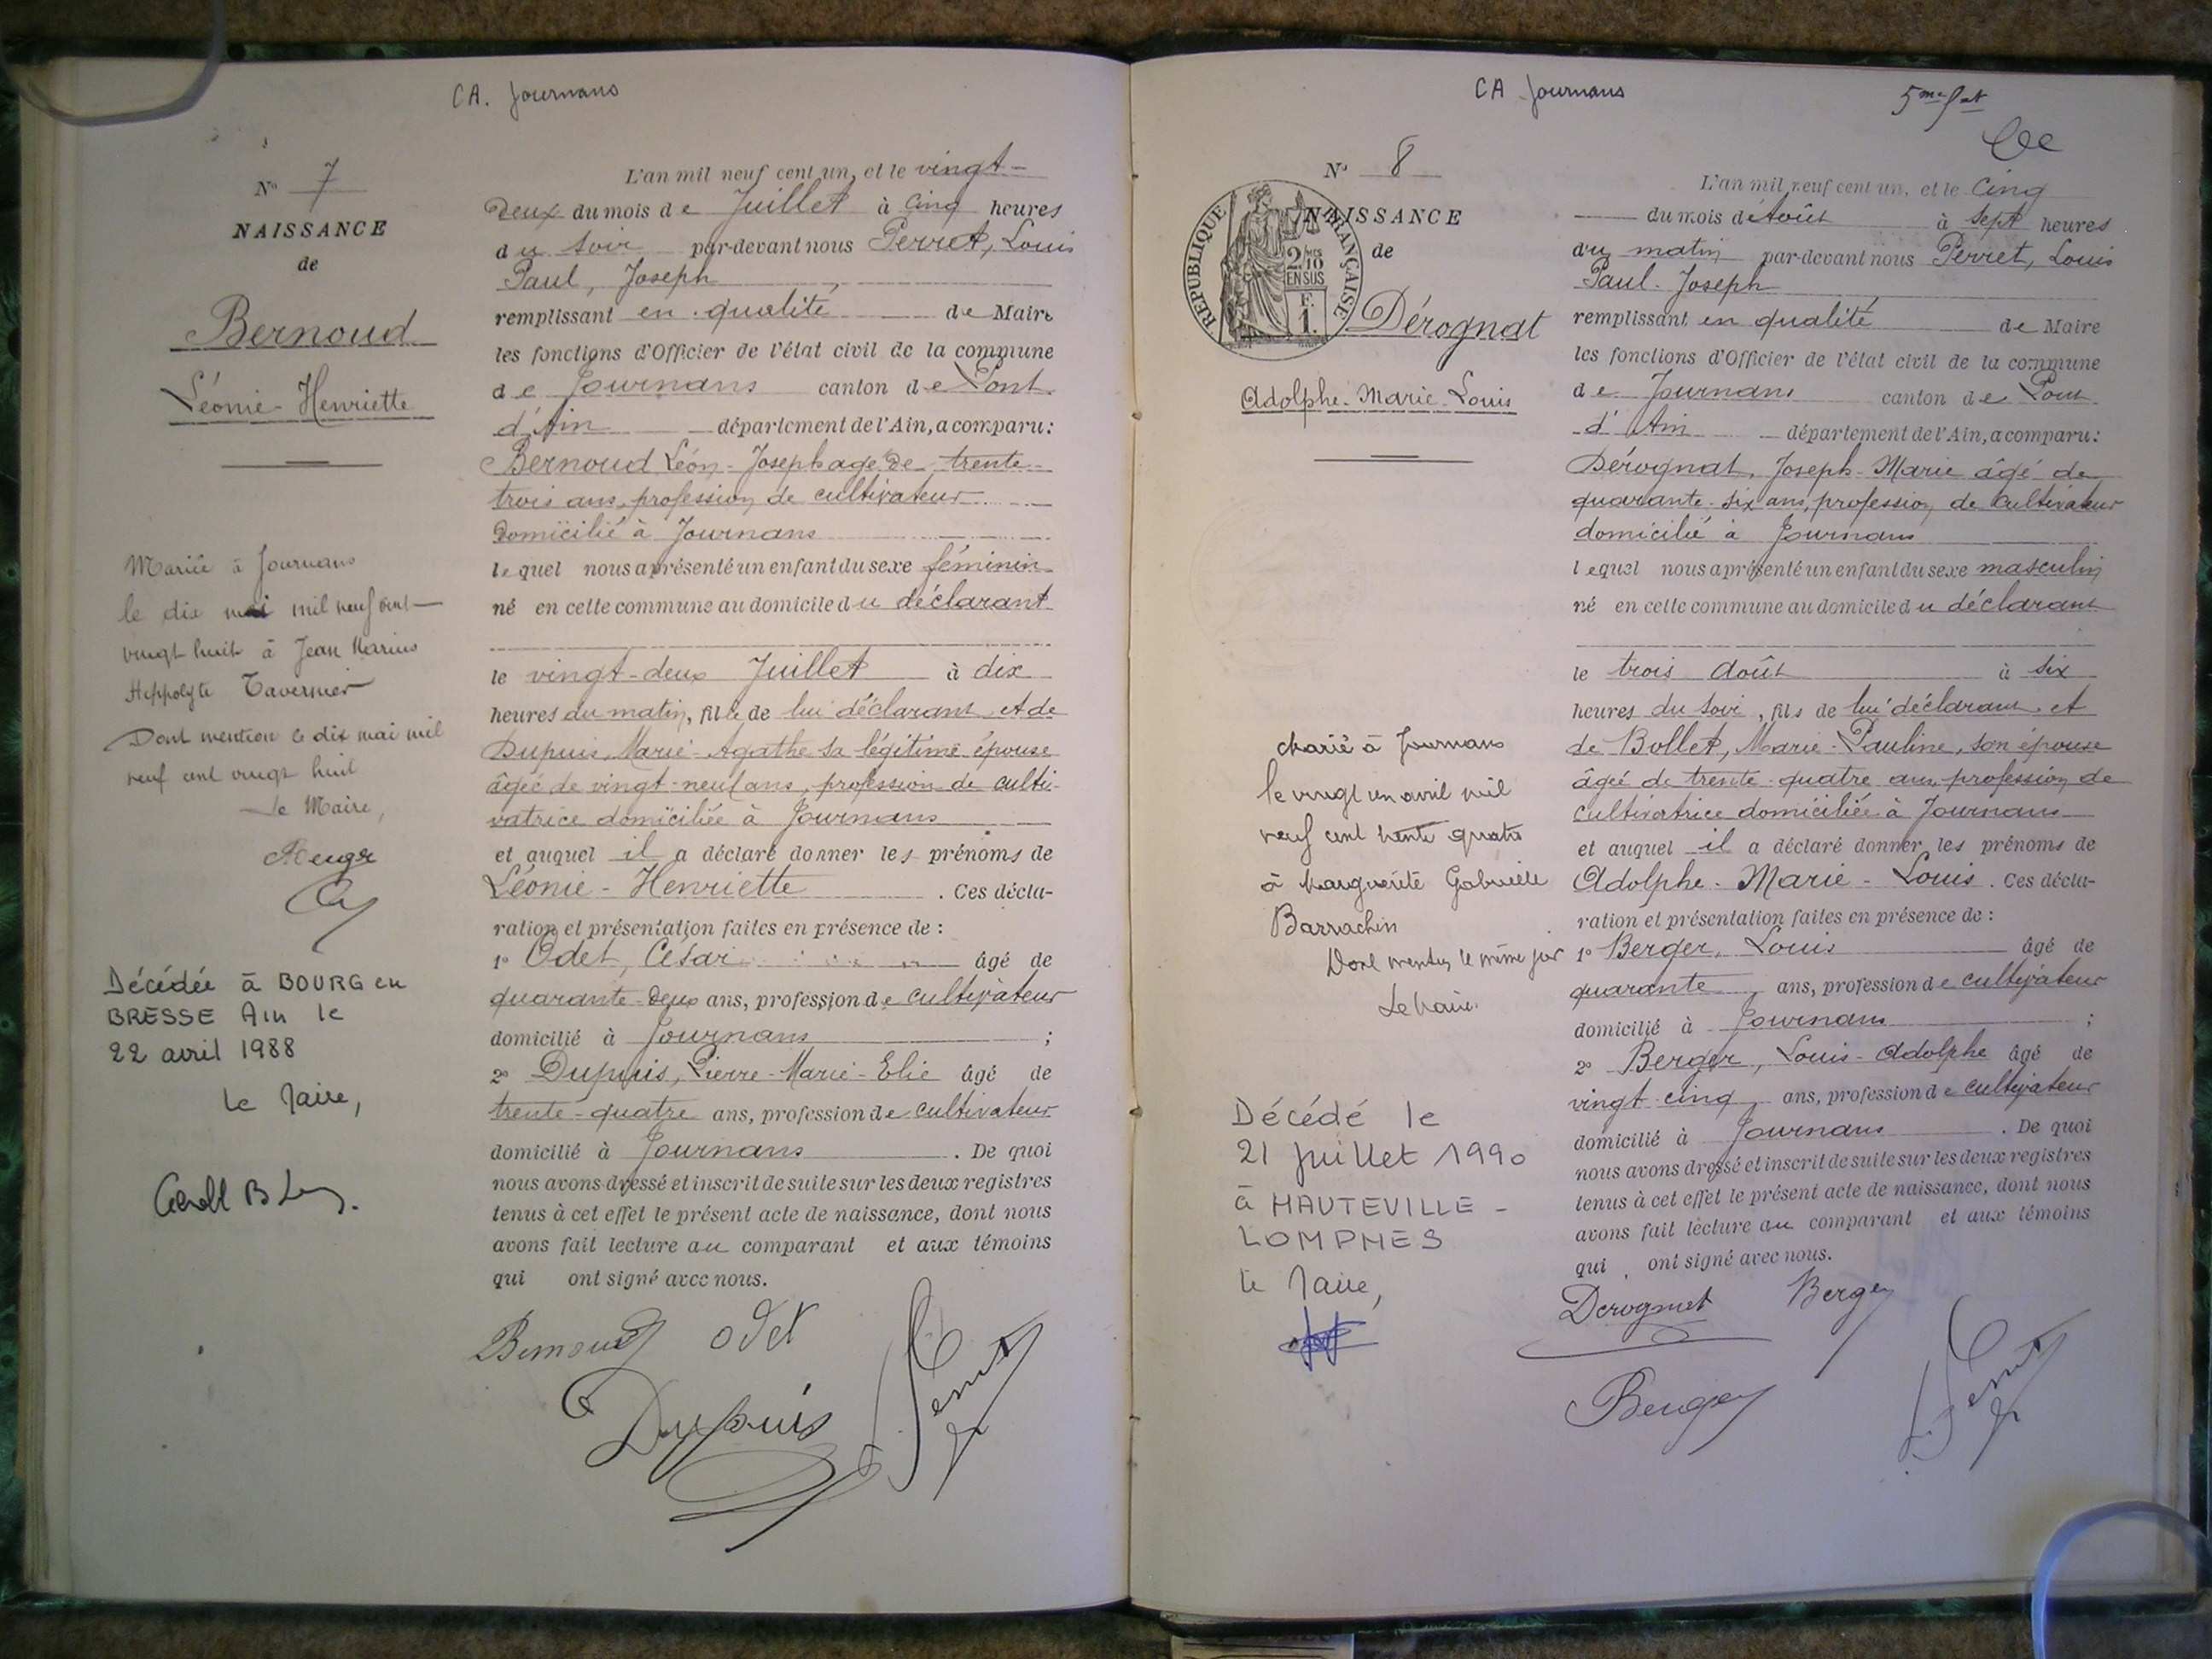 CA. Journans
N° 7
NAISSANCE
de
Bernoud
Léonie-Henriette
Mariée à Journans
le dix mai mil neuf cent
vingt huit à Jean Marius
Hippolyte Tavernier
Dont mention le dix mai mil
neuf cent vingt huit
Le Maire,
Décédée à BOURG en
BRESSE Ain le
22 avril 1988
Le Maire,
L'an mil neuf cent un, et le vingt-
deux du mois de Juillet à cinq heures
du soir par-devant nous Perret, Louis
Paul, Joseph
remplissant en qualité de Maire
les fonctions d'Officier de l'état civil de la commune
de Journans canton de Pont
d'Ain département de l'Ain, a comparu:
Bernoud Léon-Joseph agé de trente-
trois ans, profession de cultivateur
domicilié à Journans
lequel nous a présenté un enfant du sexe féminin
né en cette commune au domicile du déclarant
le vingt-deux Juillet à dix
heures du matin, fille de lui déclarant et de
Dupuis, Marie-Agathe sa légitime épouse
âgée de vingt-neuf ans, profession de culti-
vatrice domiciliée à Journans
et auquel il a déclaré donner les prénoms de
Léonie-Henriette. Ces décla-
ration et présentation faites en présence de :
1° Odet, César âgé de
quarante-deux ans, profession de cultivateur
domicilié à Journans ;
2° Dupuis, Pierre-Marie-Elie âgé de
trente-quatre ans, profession de cultivateur
domicilié à Journans. De quoi
nous avons dressé et inscrit de suite sur les deux registres
tenus à cet effet le présent acte de naissance, dont nous
avons fait lecture au comparant et aux témoins
qui ont signé avec nous.
Bernoud odet
Dupuis
CA Journans
N° 8
NAISSANCE
de
REPUBLIQUE FRANÇAISE
2/10
EN SUS
F.
1.
Dérognat
Adolphe-Marie-Louis
Marié à Journans
le vingt un avril mil
neuf cent trente quatre
à Marguerite Gabrielle
Barrachin
Dont mention le même jour
Le Maire.
Décédé le
21 Juillet 1990
à HAUTEVILLE-
LOMPNES
Le Maire,
L'an mil neuf cent un, et le cinq
du mois d'Août à sept heures
du matin par-devant nous Perret, Louis
Paul-Joseph
remplissant en qualité de Maire
les fonctions d'Officier de l'état civil de la commune
de Journans canton de Pont
d'Ain département de l'Ain, a comparu:
Dérognat, Joseph-Marie âgé de
quarante-six ans, profession de cultivateur
domicilié à Journans
lequel nous a présenté un enfant du sexe masculin
né en cette commune au domicile du déclarant
le trois Août à six
heures du soir, fils de lui déclarant et
de Bollet, Marie-Pauline, son épouse
âgée de trente-quatre ans, profession de
cultivatrice domiciliée à Journans
et auquel il a déclaré donner les prénoms de
Adolphe-Marie-Louis. Ces décla-
ration et présentation faites en présence de :
1° Berger, Louis âgé de
quarante ans, profession de cultivateur
domicilié à Journans ;
2° Berger, Louis-Adolphe âgé de
vingt-cinq ans, profession de cultivateur
domicilié à Journans. De quoi
nous avons dressé et inscrit de suite sur les deux registres
tenus à cet effet le présent acte de naissance, dont nous
avons fait lecture au comparant et aux témoins
qui ont signé avec nous.
Derognat Berger
Berger